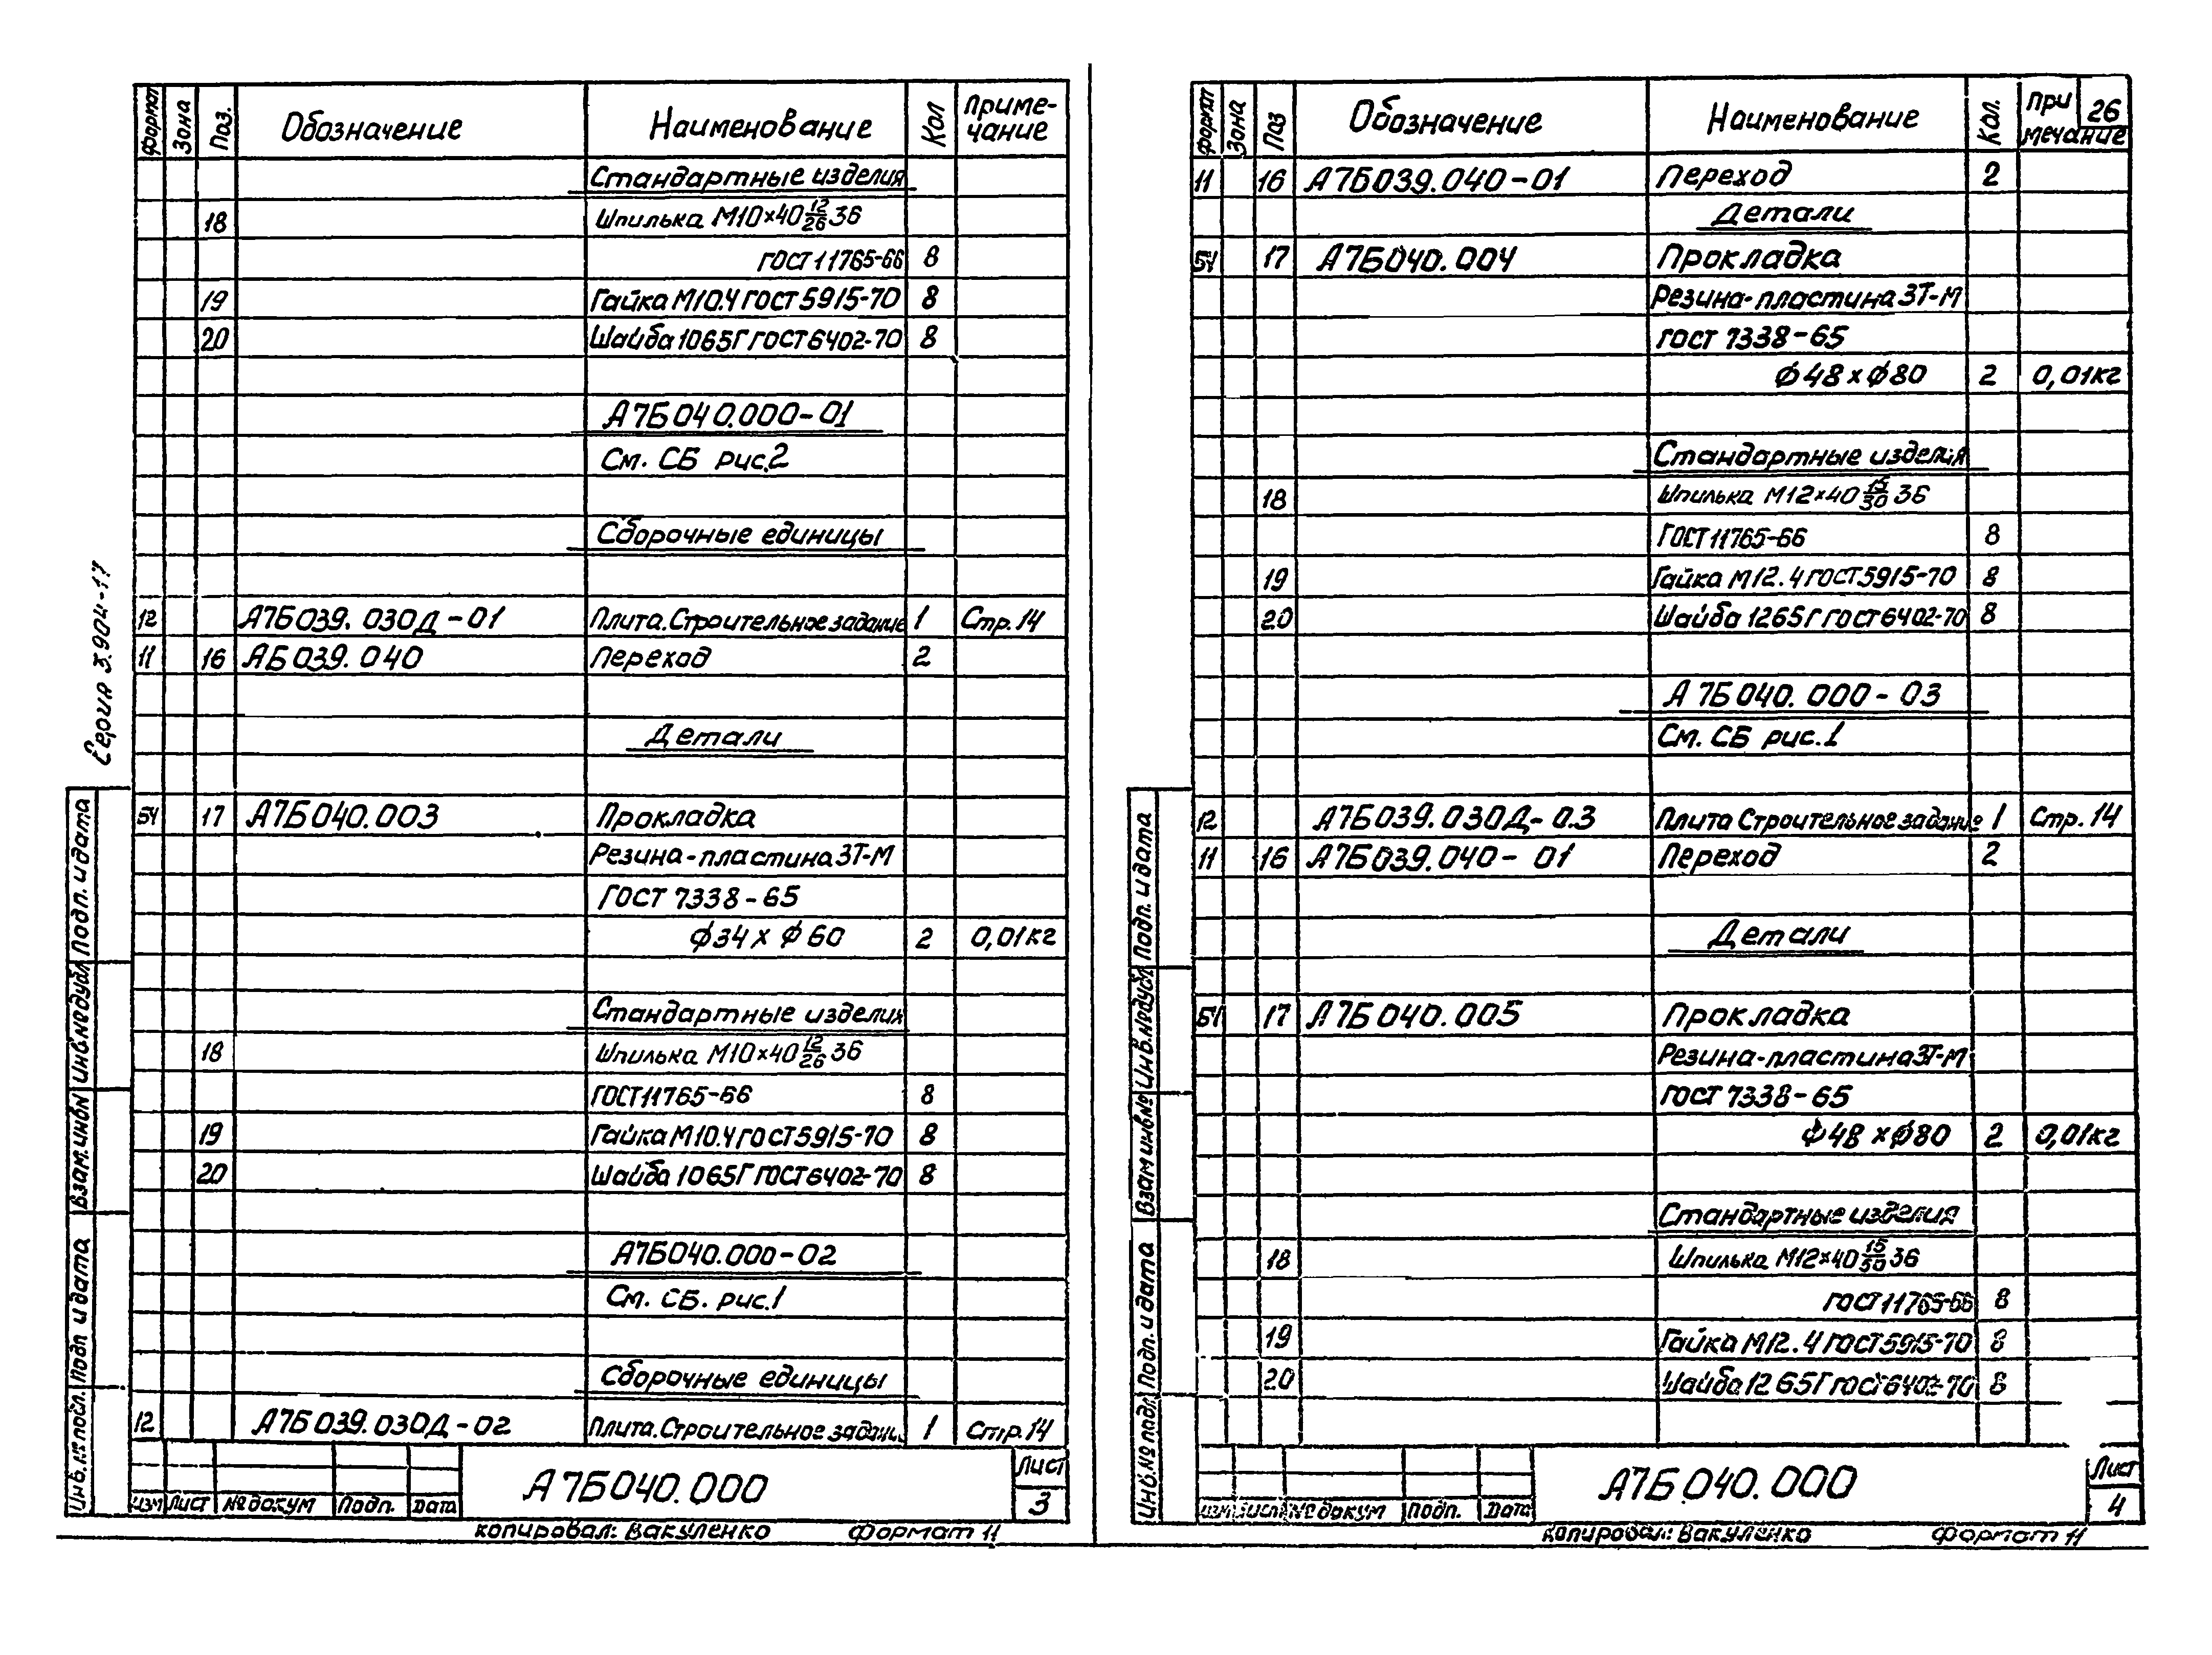 Серия 3.904-17
формат Зона Поз. Обозначение Наименование Кол Приме-
чание
Стандартные изделия
18 Шпилька М10×40 12/26 36
ГОСТ 11765-66 8
19 Гайка М10.4 ГОСТ 5915-70 8
20 Шайба 10 65Г ГОСТ 6402-70 8
А7Б040.000-01
См. СБ рис.2
Сборочные единицы
12 А7Б039.030Д-01 Плита.Строительное задание 1 Стр.14
11 16 АБ039.040 Переход 2
Детали
БЧ 17 А7Б040.003 Прокладка
Резина-пластина 3Т-М
ГОСТ 7338-65
ф34 х ф60 2 0,01кг
Стандартные изделия
18 Шпилька М10×40 12/26 36
ГОСТ 11765-66 8
19 Гайка М10.4 ГОСТ 5915-70 8
20 Шайба 10 65Г ГОСТ 6402-70 8
А7Б040.000-02
См. СБ. рис.1
Сборочные единицы
12 А7Б039.030Д-02 Плита.Строительное задани 1 Стр.14
Подп. и дата
Инв.№дубл
Взам.инв№
Подп и дата
Инв.№подл.
А7Б040.000
Лист
3
Изм Лист №докум Подп. Дата
копировал: Вакуленко формат 11
формат Зона Поз Обозначение Наименование Кол. При
мечание
26
11 16 А7Б039.040-01 Переход 2
Детали
БЧ 17 А7Б040.004 Прокладка
Резина-пластина 3Т-М
ГОСТ 7338-65
ф48 х ф80 2 0,01кг
Стандартные изделия
18 Шпилька М12×40 15/30 36
ГОСТ 11765-66 8
19 Гайка М12.4 ГОСТ 5915-70 8
20 Шайба 12 65Г ГОСТ 6402-70 8
А7Б040.000-03
См. СБ рис.1
12 А7Б039.030Д-03 Плита Строительное задание 1 Стр.14
11 16 А7Б039.040-01 Переход 2
Детали
БЧ 17 А7Б040.005 Прокладка
Резина-пластина 3Т-М
ГОСТ 7338-65
ф48 х ф80 2 0,01кг
Стандартные изделия
18 Шпилька М12×40 15/50 36
ГОСТ 11765-66 8
19 Гайка М12.4 ГОСТ 5915-70 8
20 Шайба 12 65Г ГОСТ 6402-70 8
Подп. и дата
Инв.№дубл
Взам инв№
Подп. и дата
Инв.№ подл
А7Б040.000
Лист
4
Изм Лист № докум Подп. Дата
копировал: Вакуленко формат 11